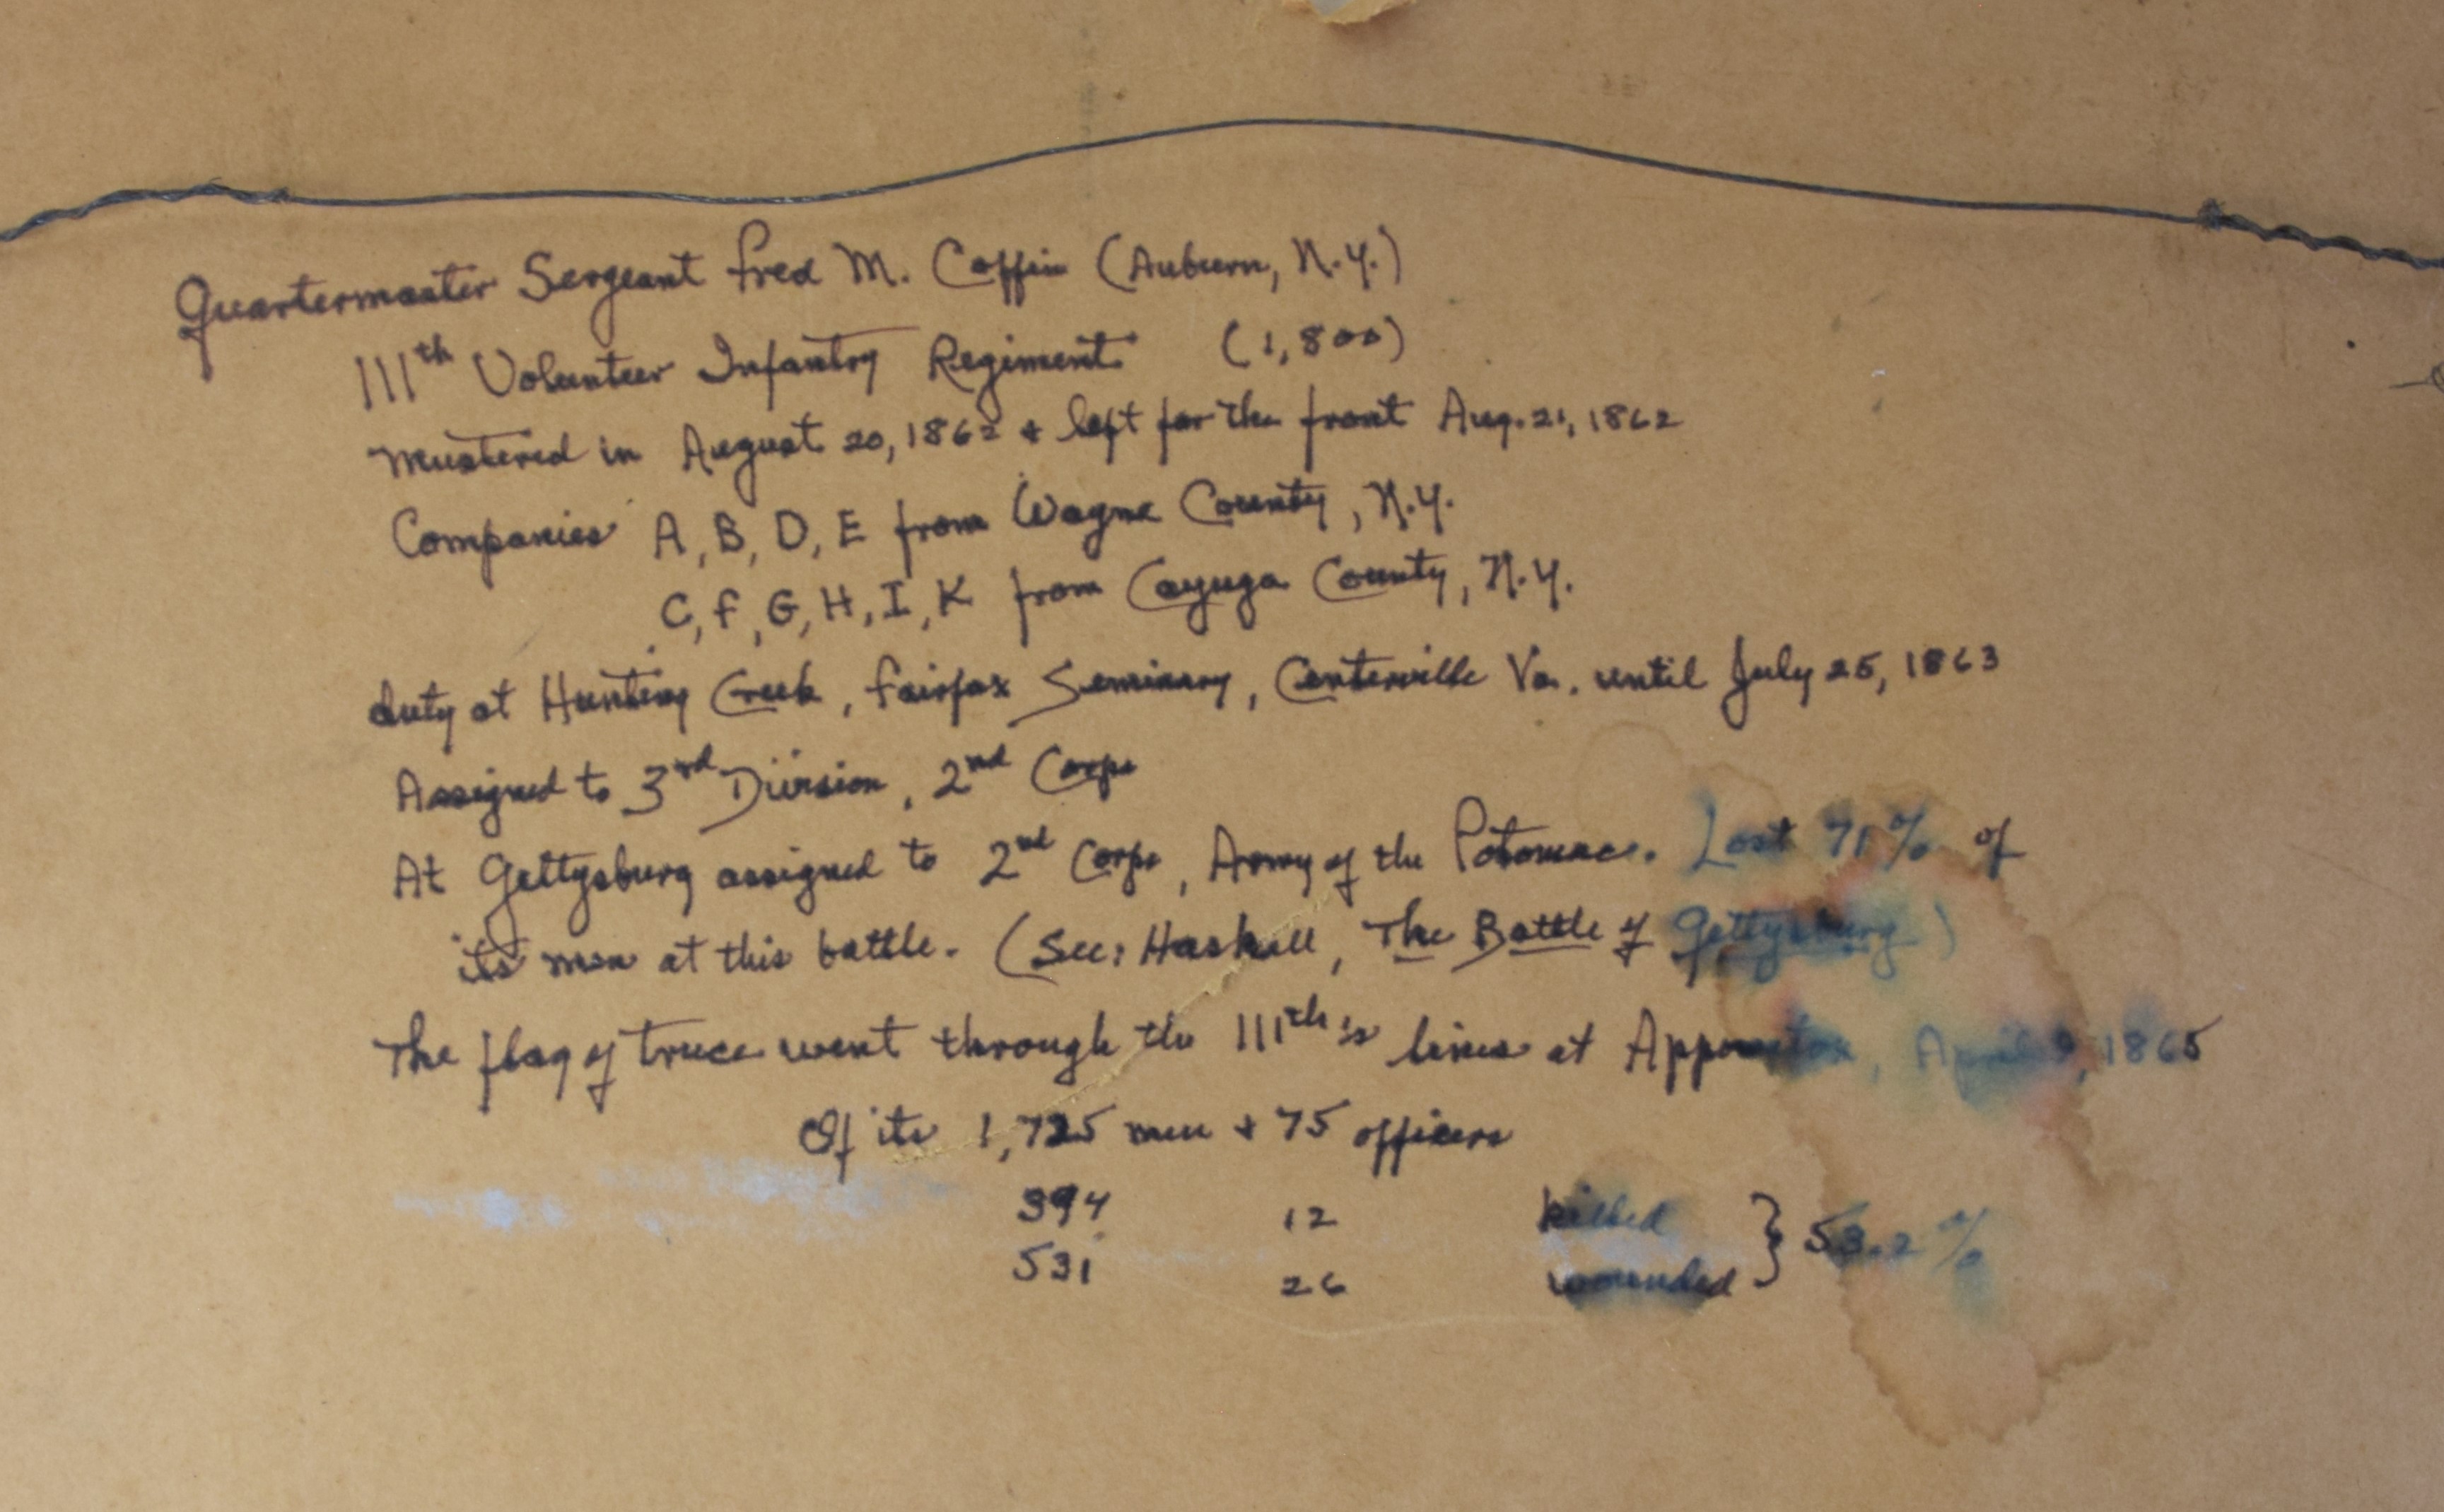 Quartermaster Sergeant Fred M. Coffin (Auburn, N.Y.)
111th Volunteer Infantry Regiment (1,800)
Mustered in August 20, 1862 & left for the front Aug. 21, 1862
Companies A, B, D, E from Wagne County, N.Y.
C, F, G, H, I, K from Cayuga County, N.Y.
duty at Hunting Creek, Fairfax Seminary, Centerville Va. until July 25, 1863
Assigned to 3rd Division, 2nd Corps
At Gettysburg assigned to 2nd Corps, Army of the Potomac. Lost 71% of
its men at this battle. (See: Haskell, The Battle of Gettysburg)
The flag of truce went through the 111th's lines at Appomattox, April 9, 1865
Of its 1,725 men & 75 officers
394 12 killed
531 26 wounded } 53.2%